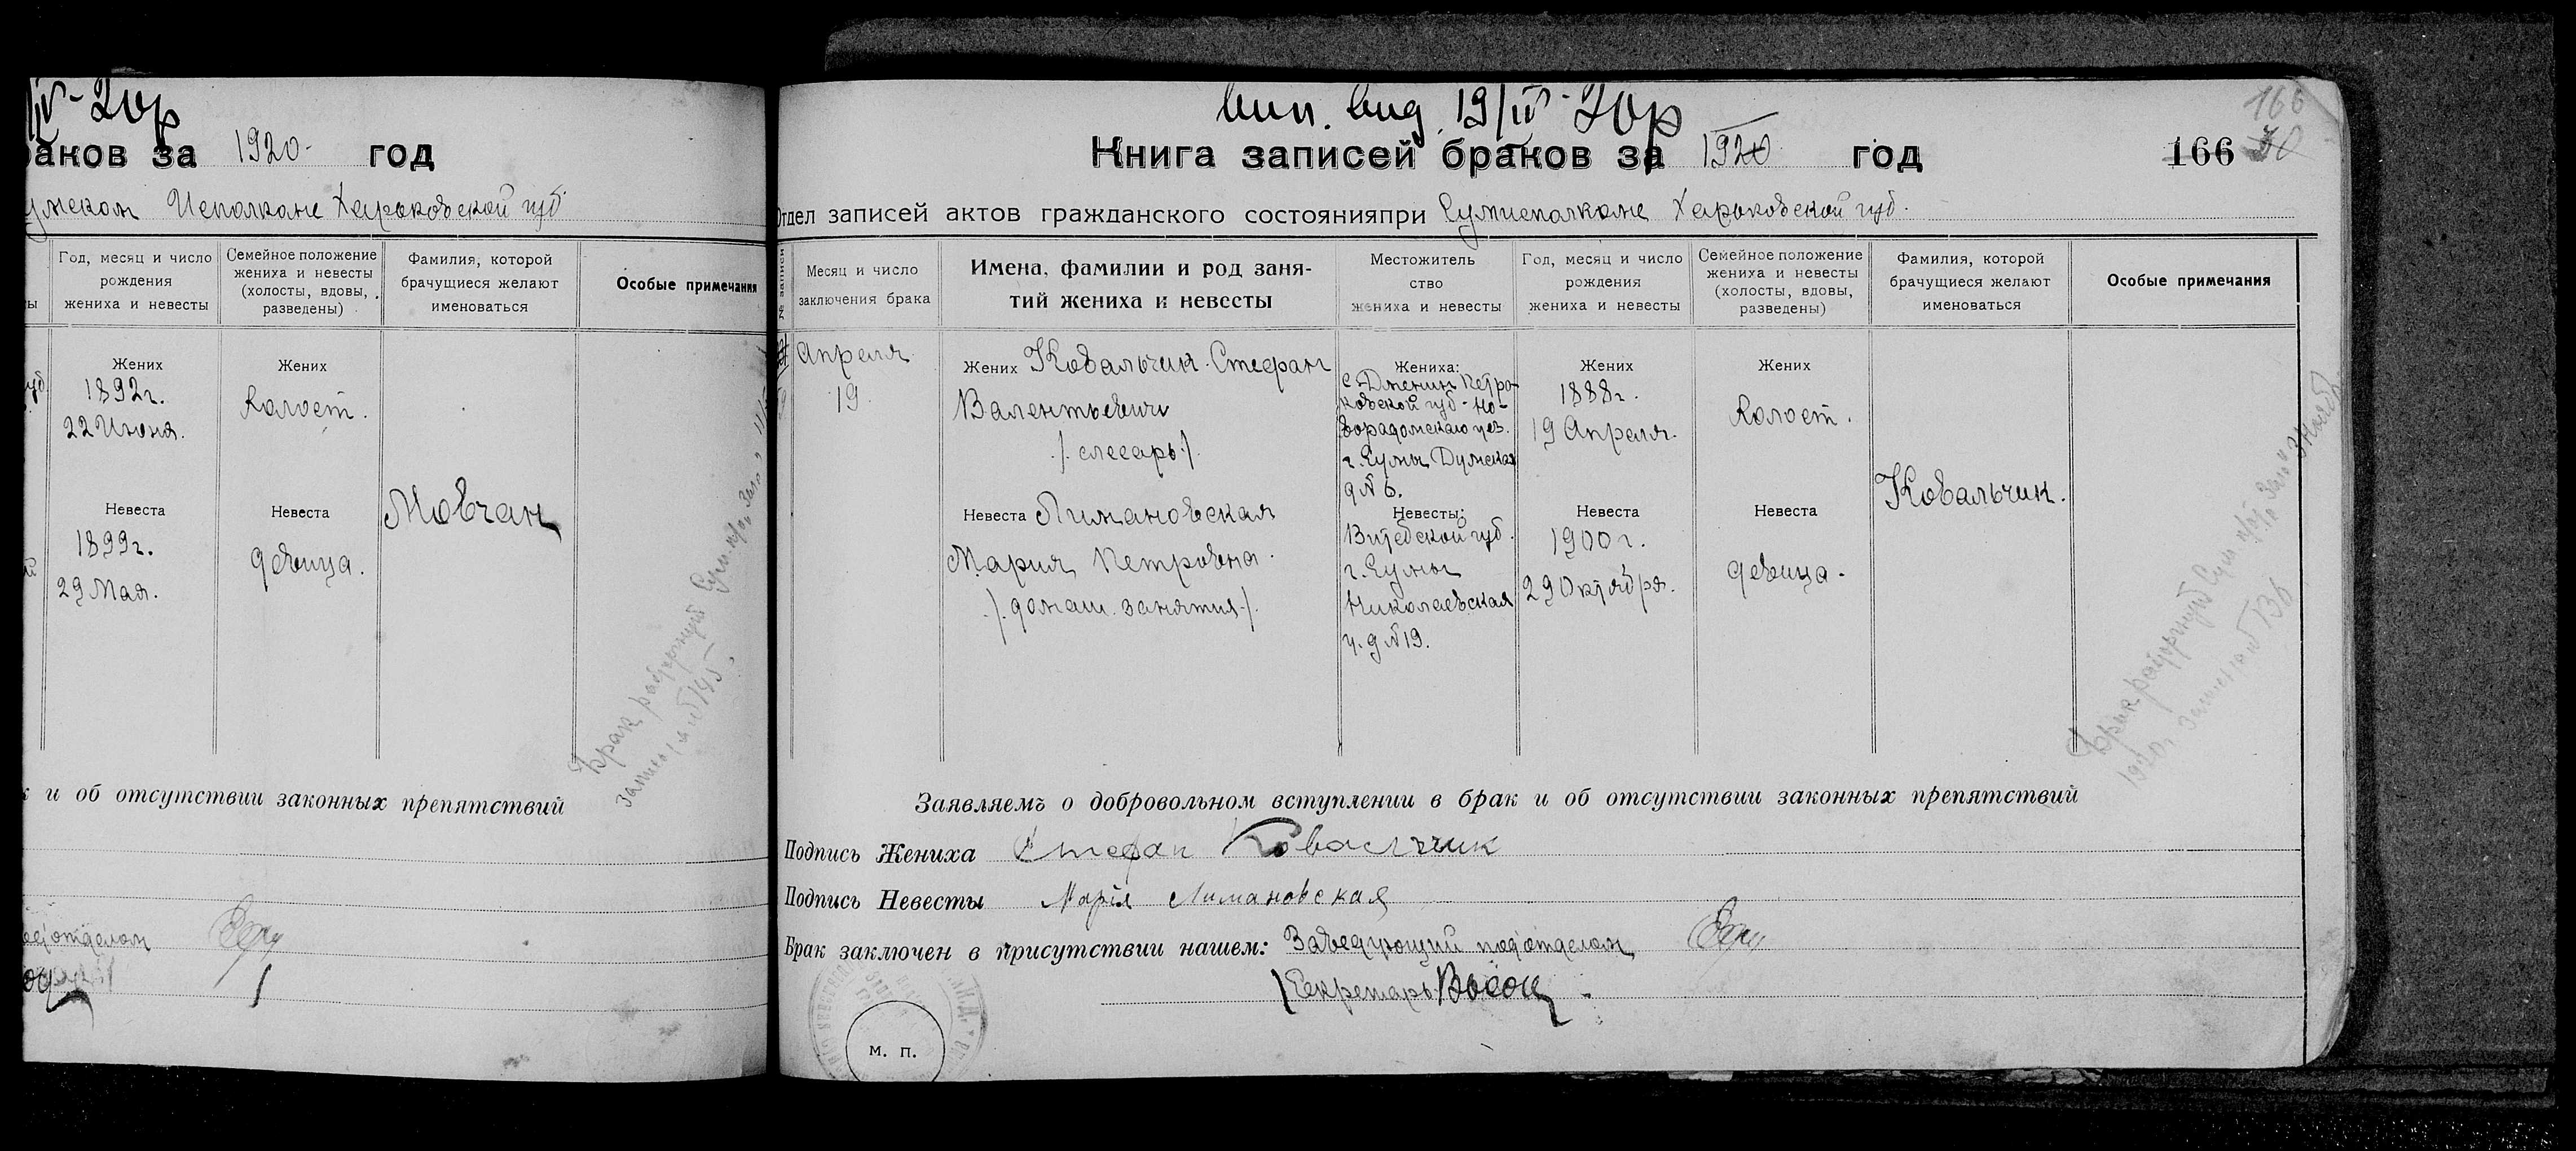 IV-20р
раков за 1920 год
умском Исполкоме Харьковской губ.
Год, месяц и число
рождения
жениха и невесты
Семейное положение
жениха и невесты
(холосты, вдовы,
разведены)
Фамилия, которой
брачущиеся желают
именоваться
Особые примечания
Жених
1892г.
22 Июня.
Жених
Холост.
Невеста
1899г.
29 Мая.
Невеста
девица.
Мовчан
Брак расторгнут
к и об отсутствии законных препятствий
подотделом
вип. вид. 19/IV-20р
Книга записей браков за 1920 год
166
166 30
Отдел записей актов гражданского состоянияпри Сумисполкоме Харьковской губ.
№ записи
Месяц и число
заключения брака
Имена, фамилии и род заня-
тий жениха и невесты
Местожитель
ство
жениха и невесты
Год, месяц и число
рождения
жениха и невесты
Семейное положение
жениха и невесты
(холосты, вдовы,
разведены)
Фамилия, которой
брачущиеся желают
именоваться
Особые примечания
Апреля
19.
Жених Ковальчик Стефан
Валентьевич
/. слесарь ./
Невеста Лимановская
Мария Петровна.
/. домаш. занятия ./
Жениха:
с. Дменин Петро-
ковской губ. Но-
ворадомскаго уез.
г. Сумы Думская
д № 6.
Невесты:
Витебской губ.
г. Сумы
Николаевская
у. д № 19.
Жених
1888г.
19 Апреля.
Невеста
1900г.
29 Октября.
Жених
Холост.
Невеста
девица.
Ковальчик.
Брак расторгнут
Заявляемъ о добровольном вступлении в брак и об отсутствии законных препятствий
Подпись Жениха Стефан Ковальчик
Подпись Невесты Марія Лимановская
Брак заключен в присутствии нашем: Заведующий подотделом
Секретарь
м. п.